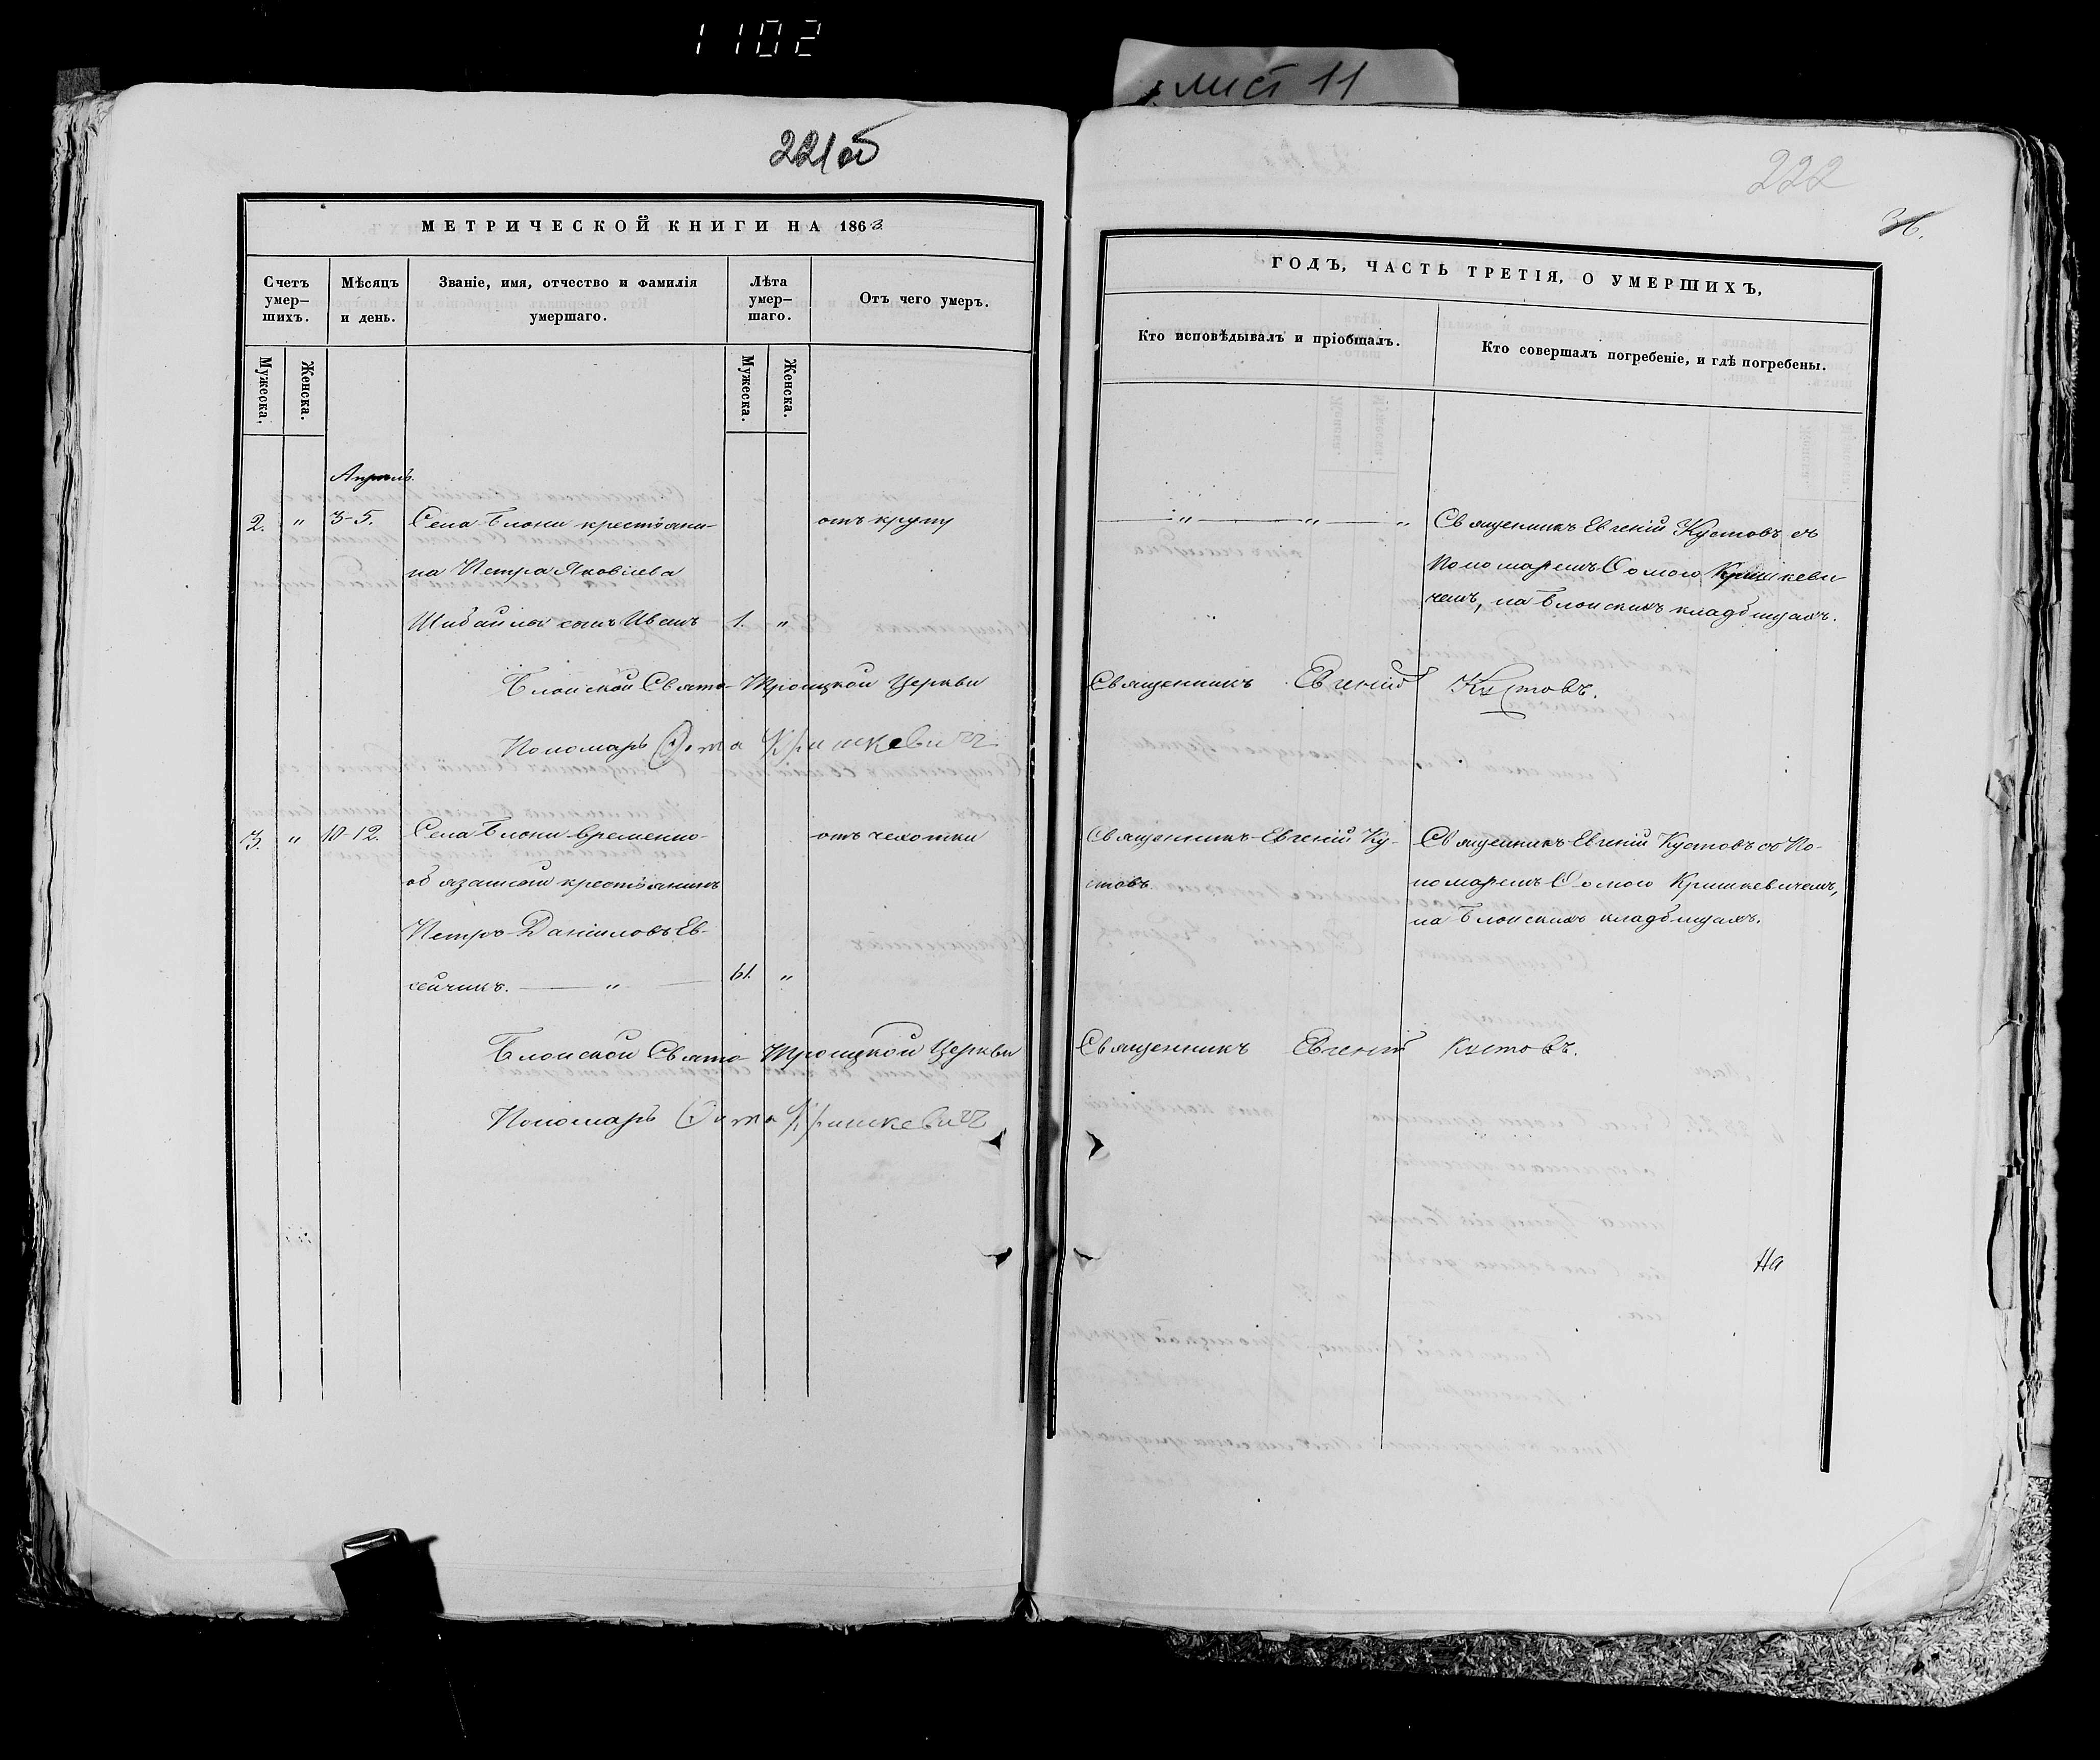 1102
лист 11
221об
222
36.
МЕТРИЧЕСКОЙ КНИГИ НА 1863
Счетъ умер-шихъ.
Мѣсяцъ и день.
Званіе, имя, отчество и фамилія умершаго.
Лѣта умер-шаго.
Отъ чего умеръ.
Мужеска.
Женска.
Мужеска.
Женска.
Апрель.
2. " 3-5. Села Блони крестьяни- отъ крупу
на Петра Яковлева
сынъ Иванъ 1. "
Блонской Свято-Троицкой Церкви
Пономарь Ѳома Кришкевичъ
3. " 10-12. Села Блони временно- отъ чехотки
обязаный крестьянинъ
Петръ Даніиловъ Ев-
сейчикъ. — " — 61. "
Блонской Свято-Троицкой Церкви
Пономарь Ѳома Кришкевичъ
ГОДЪ, ЧАСТЬ ТРЕТІЯ, О УМЕРШИХЪ,
Кто исповѣдывалъ и пріобщалъ.
Кто совершалъ погребеніе, и гдѣ погребены.
— " — " — " Священникъ Евгеній Кустовъ съ
Пономаремъ Ѳомою Кришкеви
чемъ, на Блонскихъ кладбищахъ.
Священникъ Евгеній Кустовъ.
Священникъ Евгеній Ку- Священникъ Евгеній Кустовъ съ По-
стовъ номаремъ Ѳомою Кришкевичемъ,
на Блонскихъ кладбищахъ.
Священникъ Евгеній Кустовъ.
На